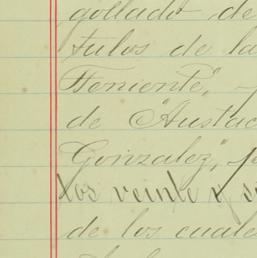 gollado de
tulos de la
Teniente",
de "Austac
Gonzalez", p
los veinte y s
de los cuale